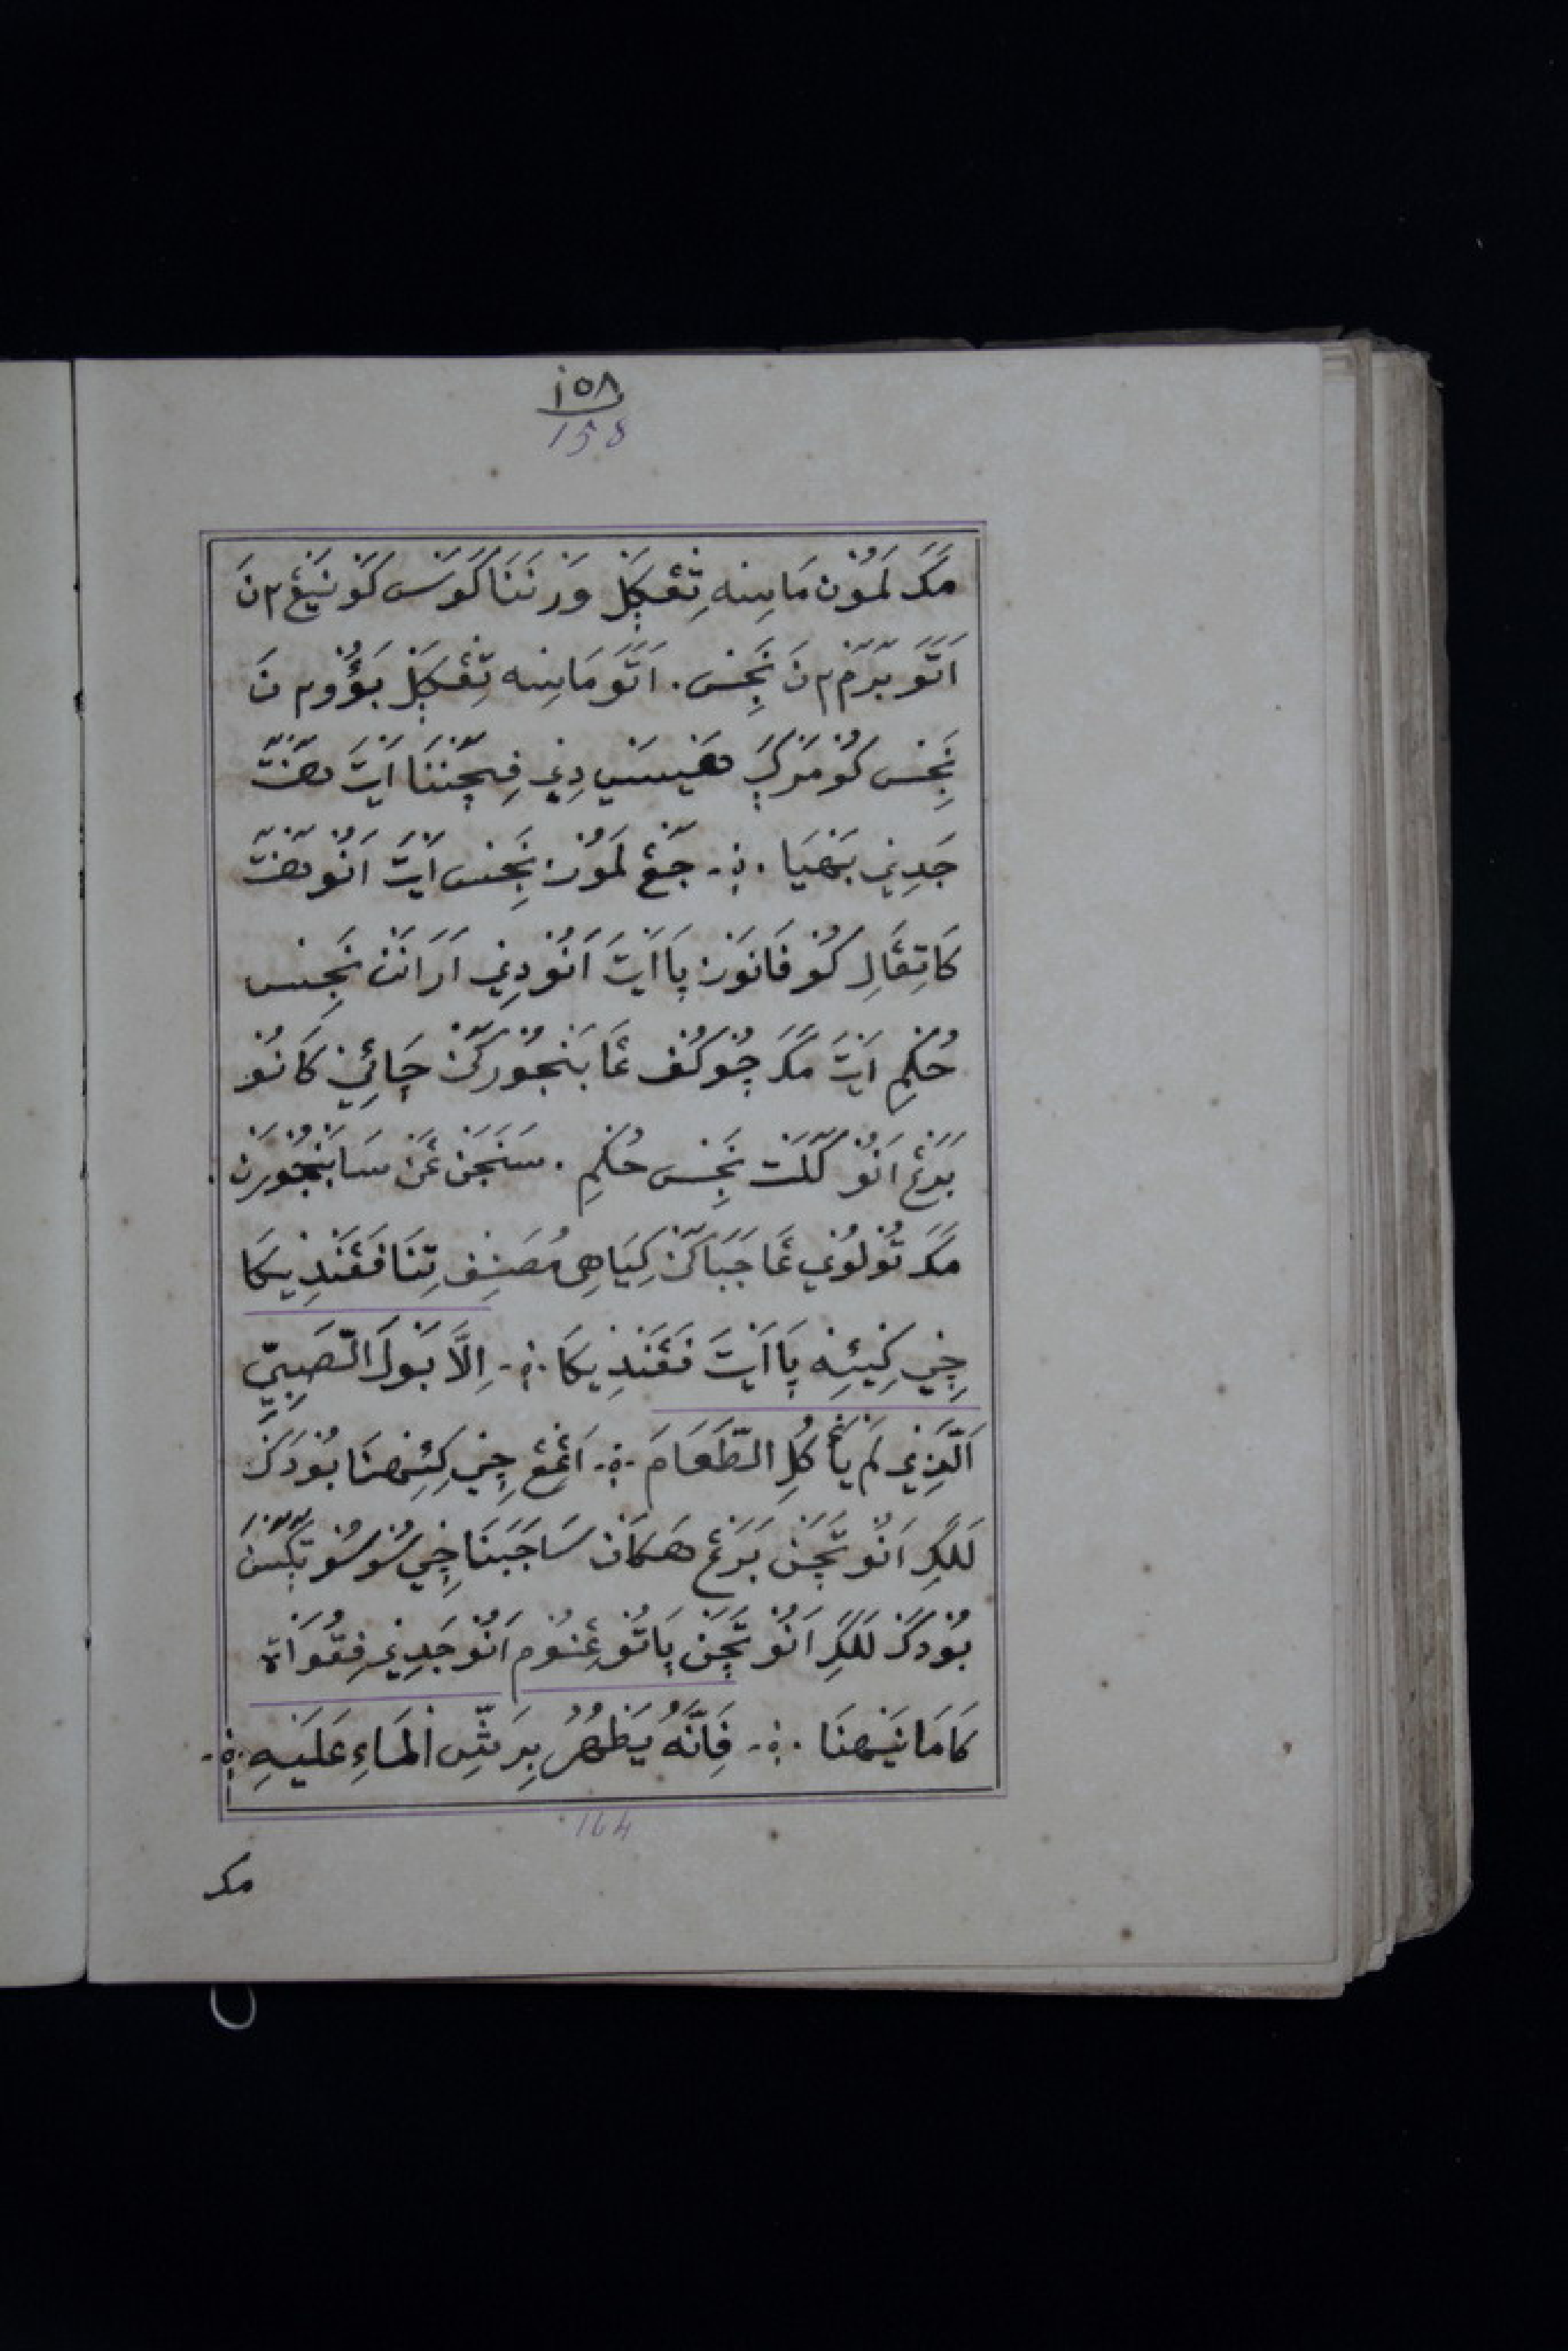 ١٥٨
158
مَكَر لَمُوْن مَاسِنه تِڠكِلْ وَرنَنَا كَوَسْ كُوْنَيَڠْ٢نَ
اَتَوَ بَرَمْ٢نَ نَجِسْ. اَتَوَ مَاسِنه تِڠكِلْ بَؤُو٢نَ
نَجِسْ كُوْمَرْكِ هَنِيسَنيِ دِينِ فِچَنْنَا اَيْتَ مَڤَتْ
جَدِينِ بَرْهَيَا .؞. جَڠ لَمُوْن نَجِسْ اَيْتَ اَنُو مَڤَتْ
كَاتِڠَالِ كُوْفَانَوْن ڽَا اَيْتَ اَنُو دِينِ اَرَانَنْ نَجِسْ
حُكْمِ اَيْتَ مَكَر چُوكُفْ غَا بَنْجُوْرَكَنْ چَائِينْ كَانُو
بَرَڠْ اَنُو كَلَتْ نَجِسْ حُكْمِ. سَنَجَنْ غَنْ سَابَنْجُوْرَنْ.
مَكَر تُوْلُوْيِ غَا جَبَاكَنْ كِيَاهِى مُصَنِفِ تِنَا فَڠَنْدِيكَا
چِيْ كِيْئِه ڽَا اَيْتَ فَڠَنْدِيكَا .؞. اِلَّا بَوْلَ الصَّبِيِّ
اَلَّذِيْ لَمْ يَأْكُلِ الطَّعَامَ .؞. اَڠِڠْ چِيْ كِئِهْنَا بُوْدَكْ
لَلَكِ اَنُو تَچَنْ بَرَڠْ هَكَانْ سَاجَبَنَا چِيْ سُوْسُو تَكَسَنْ
بُوْدَكْ لَلَكِ اَنُو تَچَنْ ڽَاتُو عِنُومْ اَنُو جَدِينِ فِقُوَاة
كَامَانَيْهنَا .؞. فَاِنَّهُ يَطْهُرُ بِرَشِّ الْمَاءِ عَلَيْهِ .؞.
164
مكر